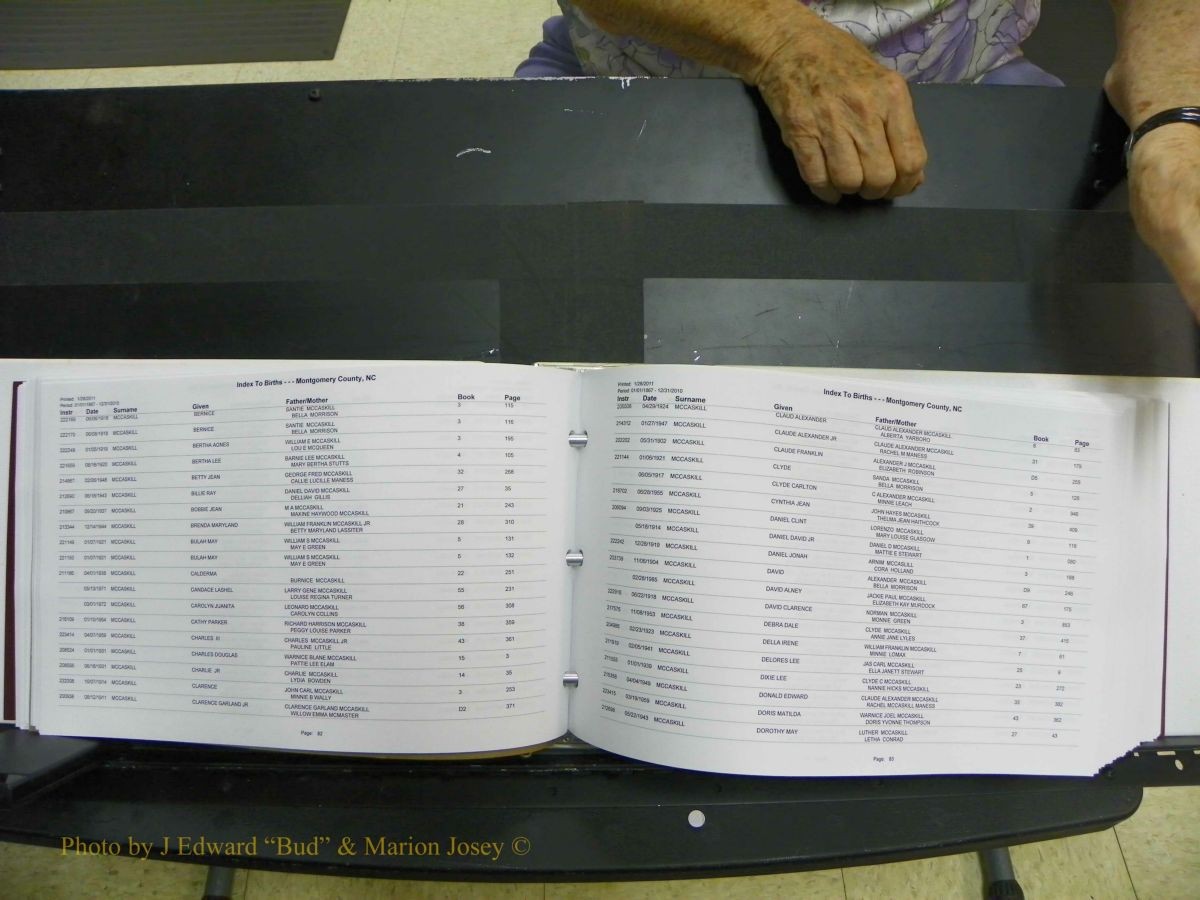 Index To Births - - - Montgomery County, NC
Printed: 1/28/2011
Period: 01/01/1867 - 12/31/2010
Instr Date Surname Given Father/Mother Book Page
MCCASKILL BERNICE SANTIE MCCASKILL 3 115
BELLA MORRISON
MCCASKILL BERNICE SANTIE MCCASKILL 3 116
BELLA MORRISON
MCCASKILL BERTHA AGNES WILLIAM E MCCASKILL 3 195
LOU E MCQUEEN
MCCASKILL BERTHA LEE BARNIE LEE MCCASKILL 4 105
MARY BERTHA STUTTS
MCCASKILL BETTY JEAN GEORGE FRED MCCASKILL 32 268
CALLIE LUCILLE MANESS
MCCASKILL BILLIE RAY DANIEL DAVID MCCASKILL 27 35
DELLIAH GILLIS
MCCASKILL BOBBIE JEAN M A MCCASKILL 21 243
MAXINE HAYWOOD MCCASKILL
213344 12/14/1944 MCCASKILL BRENDA MARYLAND WILLIAM FRANKLIN MCCASKILL JR 28 310
BETTY MARYLAND LASSITER
221149 01/07/1921 MCCASKILL BULAH MAY WILLIAM S MCCASKILL 5 131
MAY E GREEN
221150 01/07/1921 MCCASKILL BULAH MAY WILLIAM S MCCASKILL 5 132
MAY E GREEN
MCCASKILL CALDERMA 22 251
BURNICE MCCASKILL
MCCASKILL CANDACE LASHEL LARRY GENE MCCASKILL 55 231
LOUISE REGINA TURNER
03/01/1972 MCCASKILL CAROLYN JUANITA LEONARD MCCASKILL 56 308
CAROLYN COLLINS
MCCASKILL CATHY PARKER RICHARD HARRISON MCCASKILL 38 359
PEGGY LOUISE PARKER
223414 04/07/1959 MCCASKILL CHARLES III CHARLES MCCASKILL JR 43 361
PAULINE LITTLE
01/01/1931 MCCASKILL CHARLES DOUGLAS WARNICE BLANE MCCASKILL 15 3
PATTIE LEE ELAM
MCCASKILL CHARLIE JR CHARLIE MCCASKILL 14 35
LYDIA BOWDEN
MCCASKILL CLARENCE JOHN CARL MCCASKILL 3 253
MINNIE B WALLY
MCCASKILL CLARENCE GARLAND JR CLARENCE GARLAND MCCASKILL D2 371
WILLOW EMMA MCMASTER
Page: 82
Index To Births - - - Montgomery County, NC
Printed: 1/28/2011
Period: 01/01/1867 - 12/31/2010
Instr Date Surname Given Father/Mother Book Page
04/29/1924 MCCASKILL CLAUD ALEXANDER CLAUD ALEXANDER MCCASKILL 83
ALBERTA YARBORO
214312 01/27/1947 MCCASKILL CLAUDE ALEXANDER JR CLAUDE ALEXANDER MCCASKILL 31 179
RACHEL M MANESS
222202 05/31/1902 MCCASKILL CLAUDE FRANKLIN ALEXANDER J MCCASKILL D5 259
ELIZABETH ROBINSON
221144 01/06/1921 MCCASKILL CLYDE SANDA MCCASKILL 5 126
BELLA MORRISON
06/05/1917 MCCASKILL CLYDE CARLTON C ALEXANDER MCCASKILL 2
MINNIE LEACH
MCCASKILL CYNTHIA JEAN JOHN HAYES MCCASKILL 39 409
THELMA JEAN HAITHCOCK
09/03/1925 MCCASKILL DANIEL CLINT LORENZO MCCASKILL 9 118
MARY LOUISE GLASGOW
05/18/1914 MCCASKILL DANIEL DAVID JR DANIEL D MCCASKILL 1
MATTIE E STEWART
222242 12/28/1919 MCCASKILL DANIEL JONAH ARNIM MCCASKILL 3 188
CORA HOLLAND
MCCASKILL DAVID ALEXANDER MCCASKILL D9
BELLA MORRISON
MCCASKILL DAVID ALNEY JACKIE PAUL MCCASKILL 67 175
ELIZABETH KAY MURDOCK
06/22/1918 MCCASKILL DAVID CLARENCE NORMAN MCCASKILL 3
MONNIE GREEN
11/08/1953 MCCASKILL DEBRA DALE CLYDE MCCASKILL 37 415
ANNIE JANE LYLES
02/23/1923 MCCASKILL DELLA IRENE WILLIAM FRANKLIN MCCASKILL 7 61
MINNIE LOMAX
02/05/1941 MCCASKILL DELORES LEE JAS CARL MCCASKILL 25
ELLA JANETT STEWART
01/01/1939 MCCASKILL DIXIE LEE CLYDE C MCCASKILL 23 272
NANNIE HICKS MCCASKILL
04/04/1949 MCCASKILL DONALD EDWARD CLAUDE ALEXANDER MCCASKILL 33 382
RACHEL MCCASKILL MANESS
223415 03/19/1959 MCCASKILL DORIS MATILDA WARNICE JOEL MCCASKILL 43 362
DORIS YVONNE THOMPSON
05/22/1943 MCCASKILL DOROTHY MAY LUTHER MCCASKILL 27 43
LETHA CONRAD
Page: 83
Photo by J Edward “Bud” & Marion Josey ©